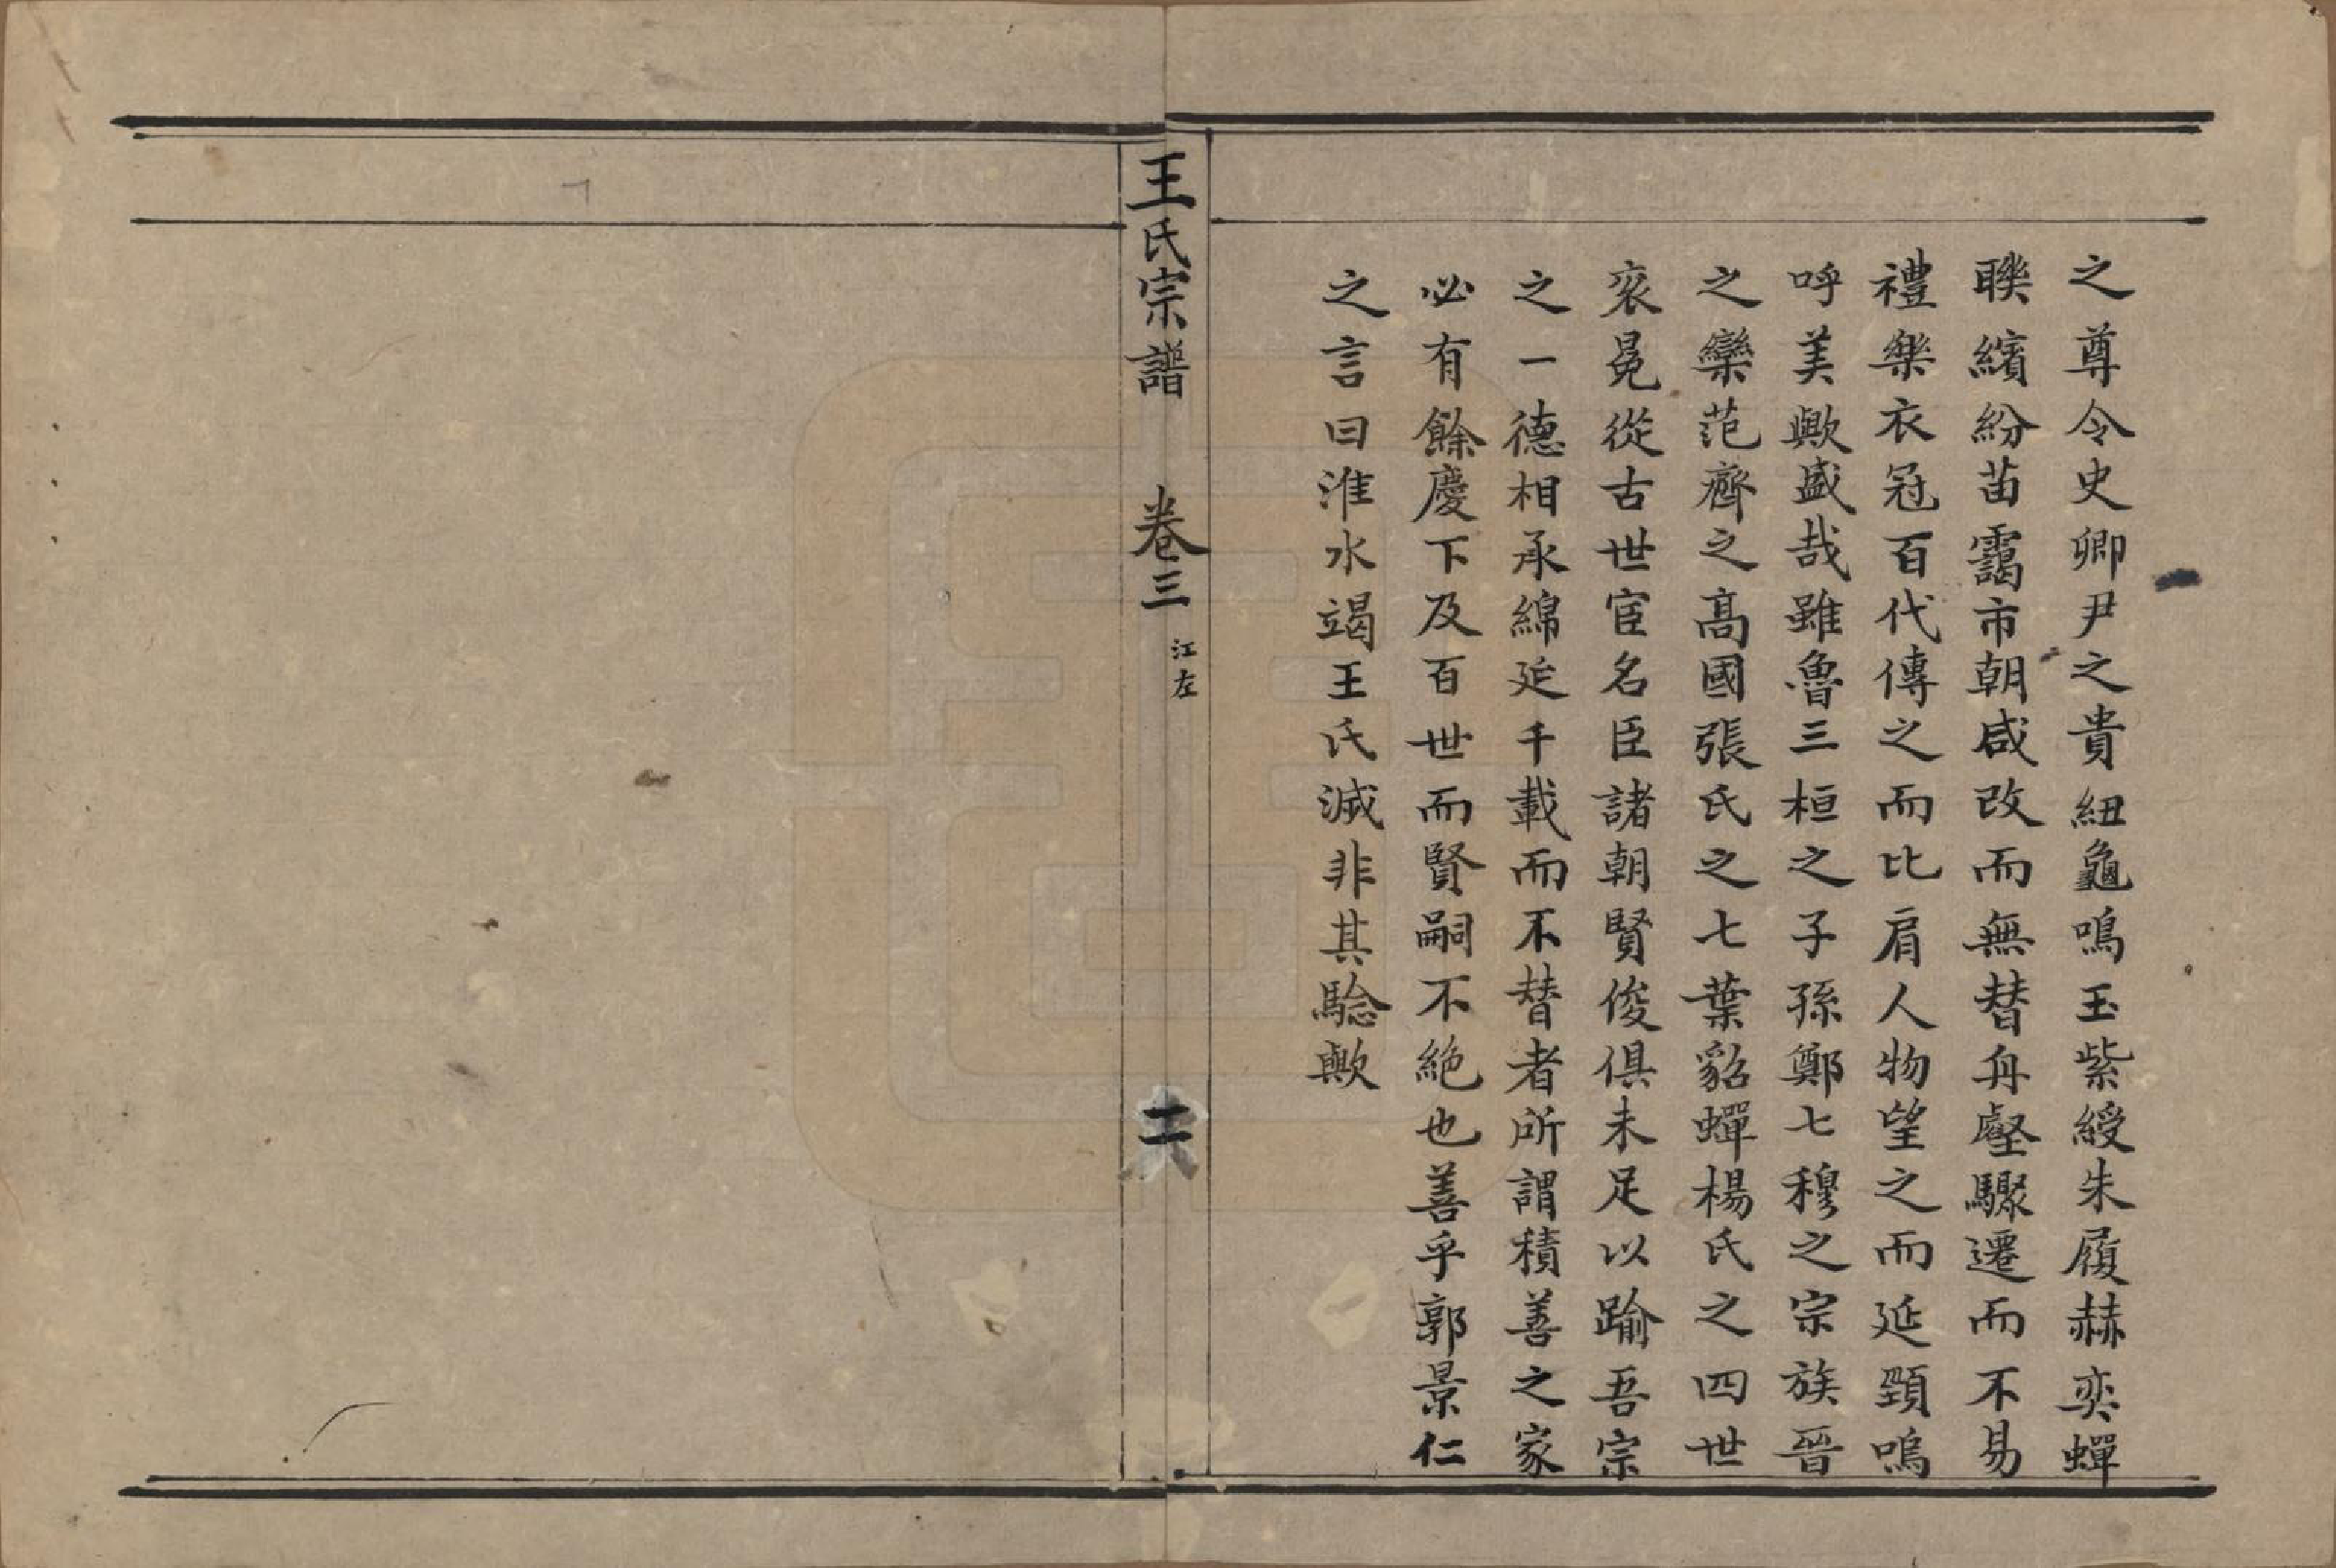 之尊令史卿尹之貴紐龜鳴玉紫綬朱履赫奕蟬
聨繽紛苗靄市朝咸改而無替舟壑驟遷而不易
禮樂衣冠百代傳之而比肩人物望之而延頸嗚
呼美歟盛哉雖魯三桓之子孫鄭七穆之宗族晉
之欒范齊之高國張氏之七葉貂蟬楊氏之四世
衮冕從古世宦名臣諸朝賢俊俱未足以踰吾宗
之一德相承綿延千載而不替者所謂積善之家
必有餘慶下及百世而賢嗣不絶也善乎郭景仁
之言曰淮水竭王氏滅非其騐歟
王氏宗譜 卷三 江左 二